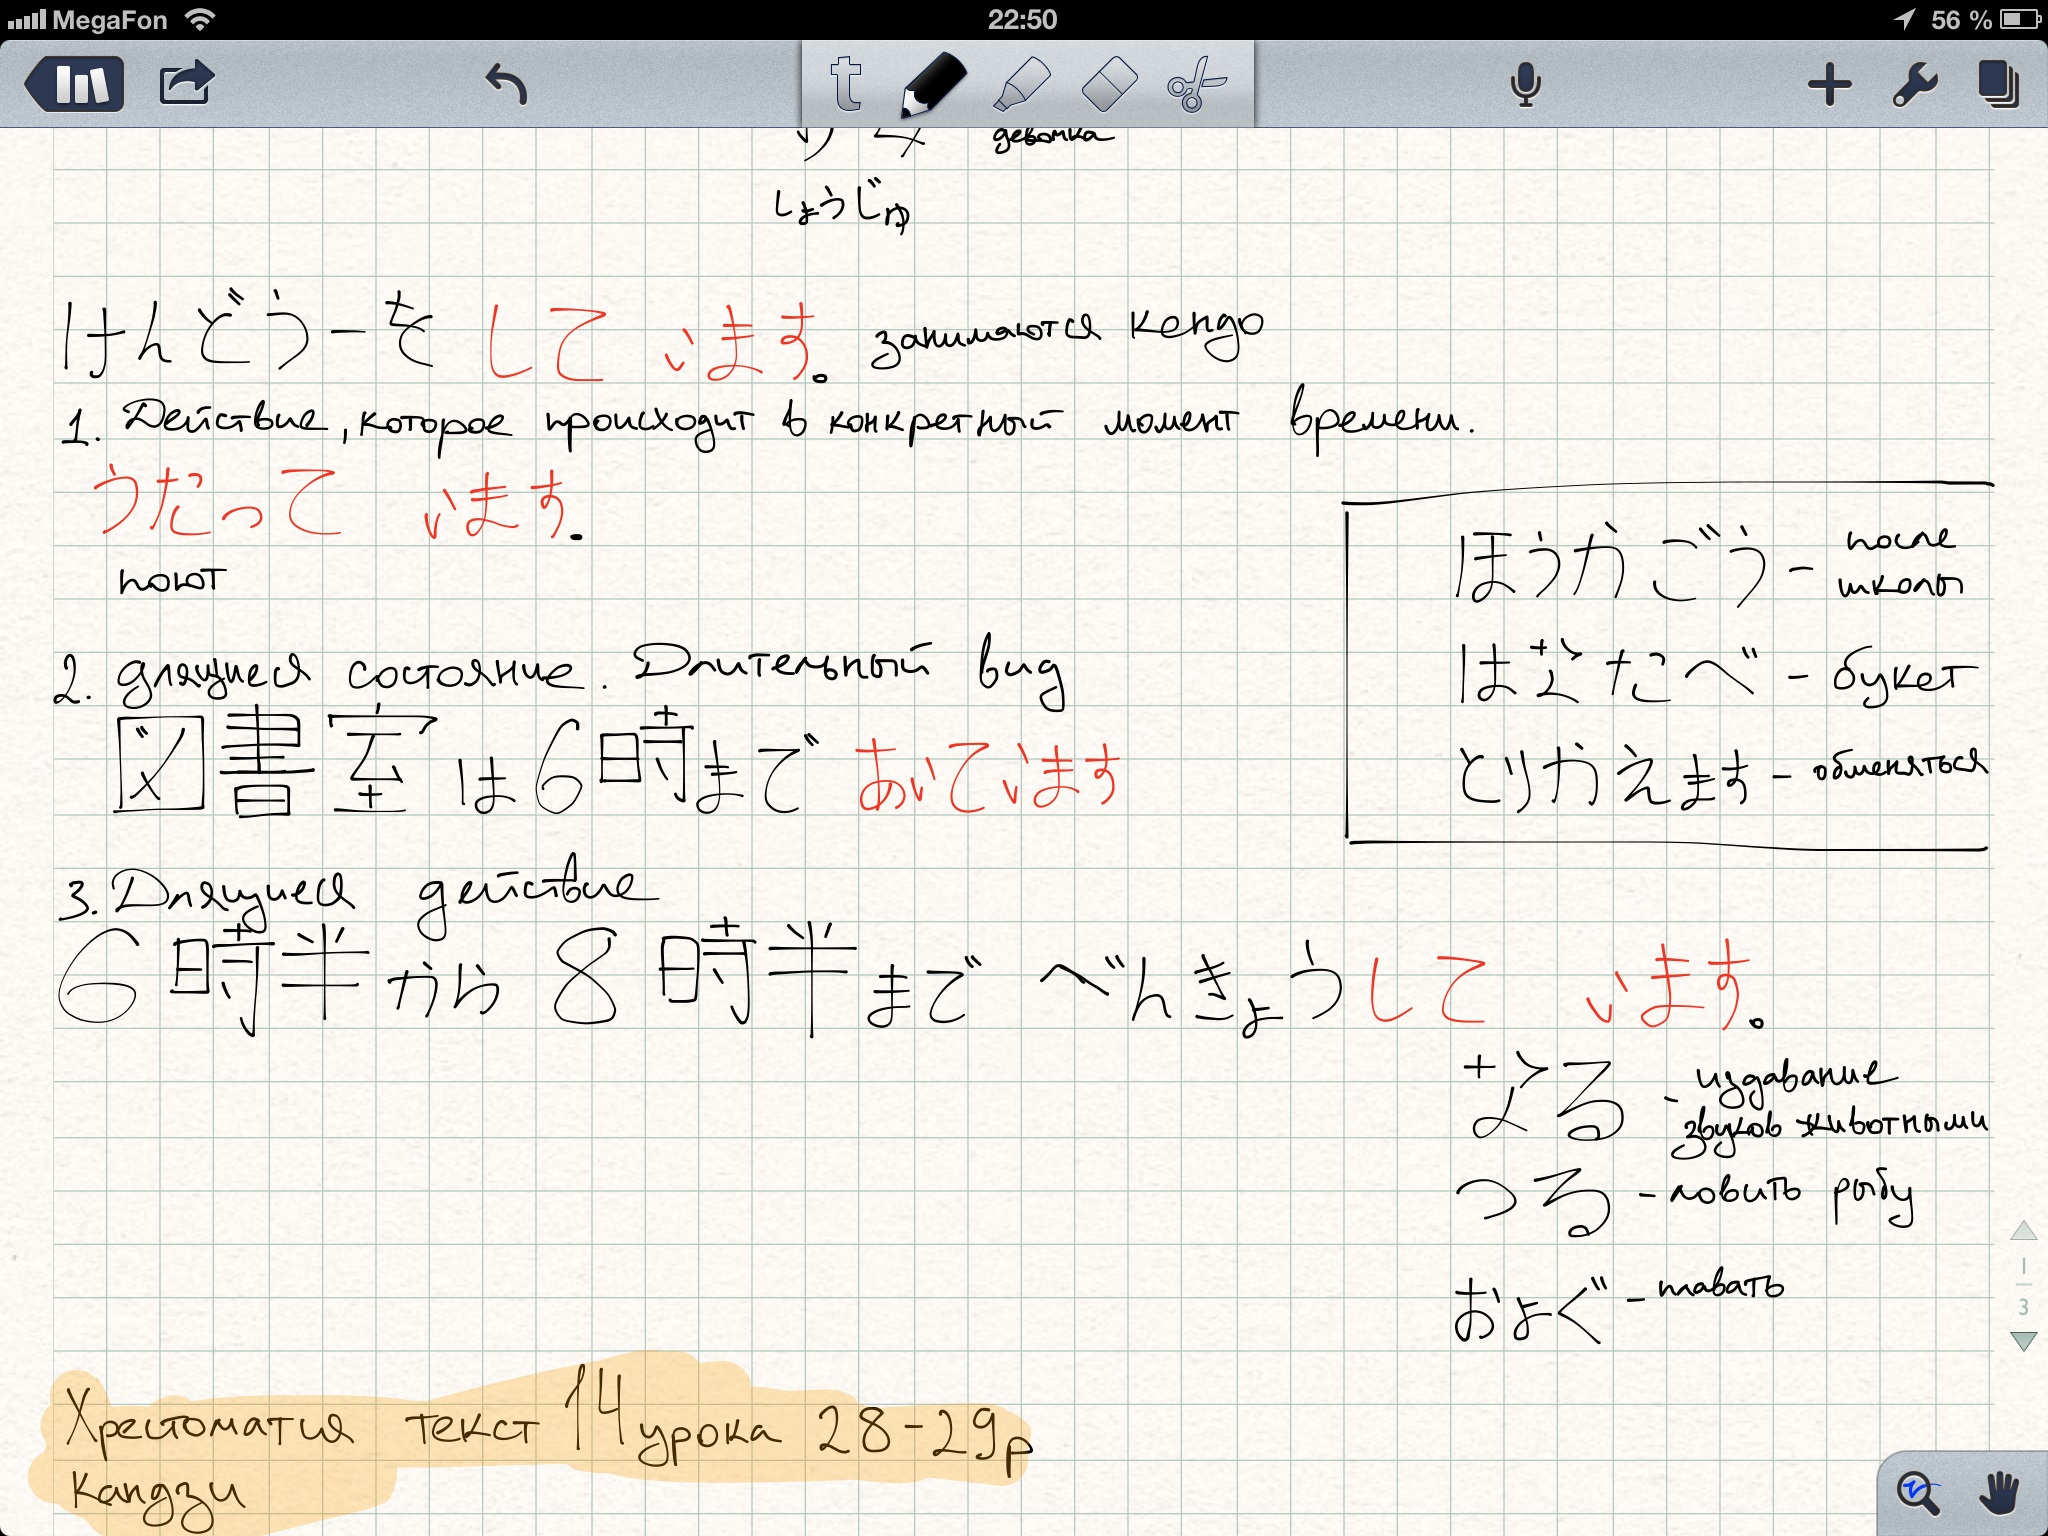 MegaFon 22:50 56 %
t
девочка
しょうじゅ
けんどうーを して います。 занимаются кендо
1. Действие, которое происходит в конкретный момент времени.
うだって います.
поют
ほうかごう - после школы
はなたべ - букет
とりかえます - обменяться
2. длящиеся состояние. Длительный вид
図書室は6時まで あいています
3. Длящиеся действие
6時半から 8時半まで べんきょうして います。
なる - издавание звуков животными
つる - ловить рыбу
およぐ - плавать
1
3
Хрестоматия текст 14 урока 28-29р
Кандзи